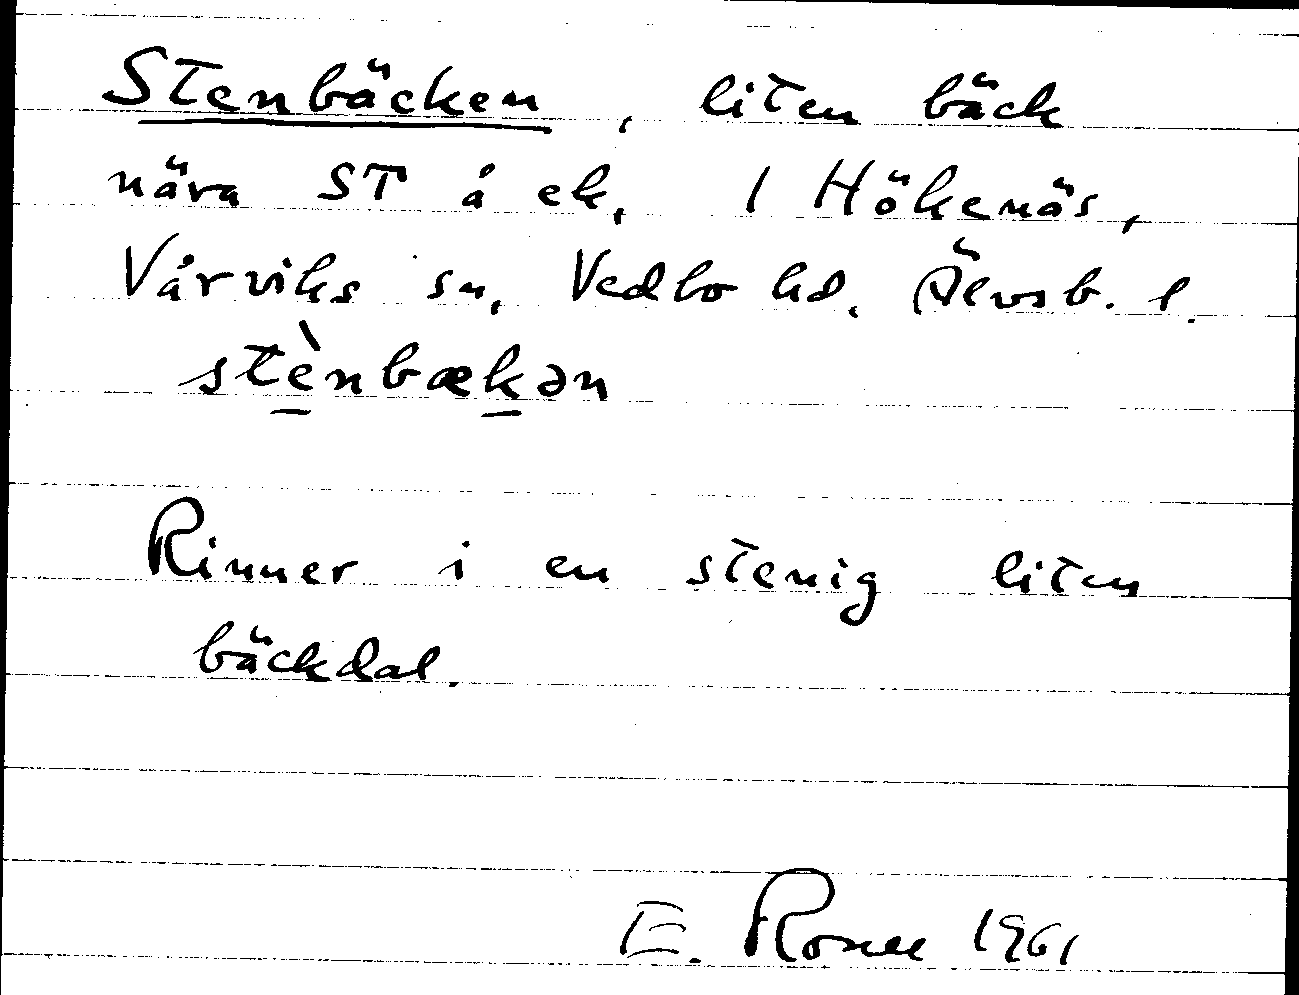 Stenbäcken, liten bäck
nära ST å ek. 1 Hökenäs,
Vårviks sn, Vedbo hd. Älvsb. l.
stènbækən
Rinner i en stenig liten
bäckdal.
E. 1961